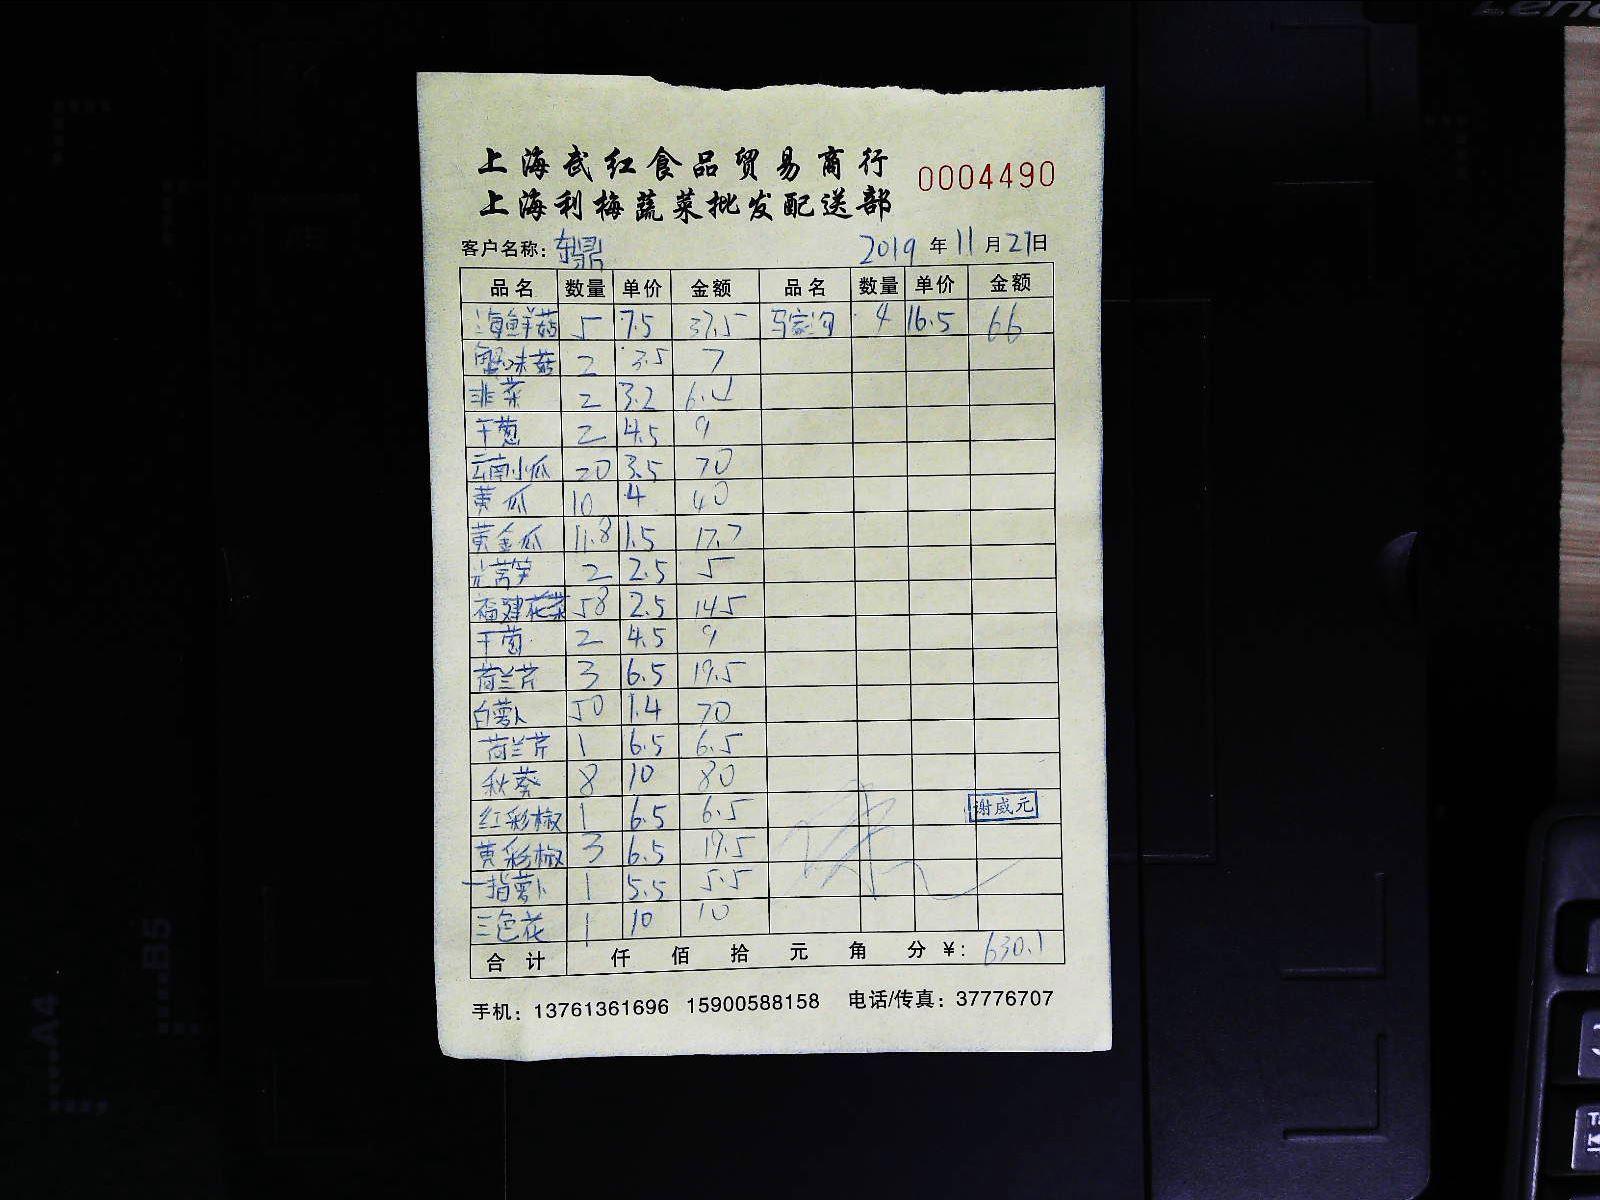 上海武红食品贸易商行 0004490
上海利梅蔬菜批发配送部
客户名称: 东鼎 2019 年 11 月 27 日
品名 数量 单价 金额 品名 数量 单价 金额
海鲜菇 5 7.5 37.5 马家沟 4 16.5 66
蟹味菇 2 3.5 7
韭菜 2 3.2 6.4
干葱 2 4.5 9
云南小瓜 20 3.5 70
黄瓜 10 4 40
黄金瓜 11.8 1.5 17.7
光莴笋 2 2.5 5
福建花菜 58 2.5 145
干葱 2 4.5 9
荷兰芹 3 6.5 19.5
白萝卜 50 1.4 70
荷兰芹 1 6.5 6.5
秋葵 8 10 80
红彩椒 1 6.5 6.5 谢威元
黄彩椒 3 6.5 19.5
一指萝卜 1 5.5 5.5
三色花 1 10 10
合计 仟 佰 拾 元 角 分 ¥: 630.1
手机: 13761361696 15900588158 电话/传真: 37776707
A4
B5
Leno